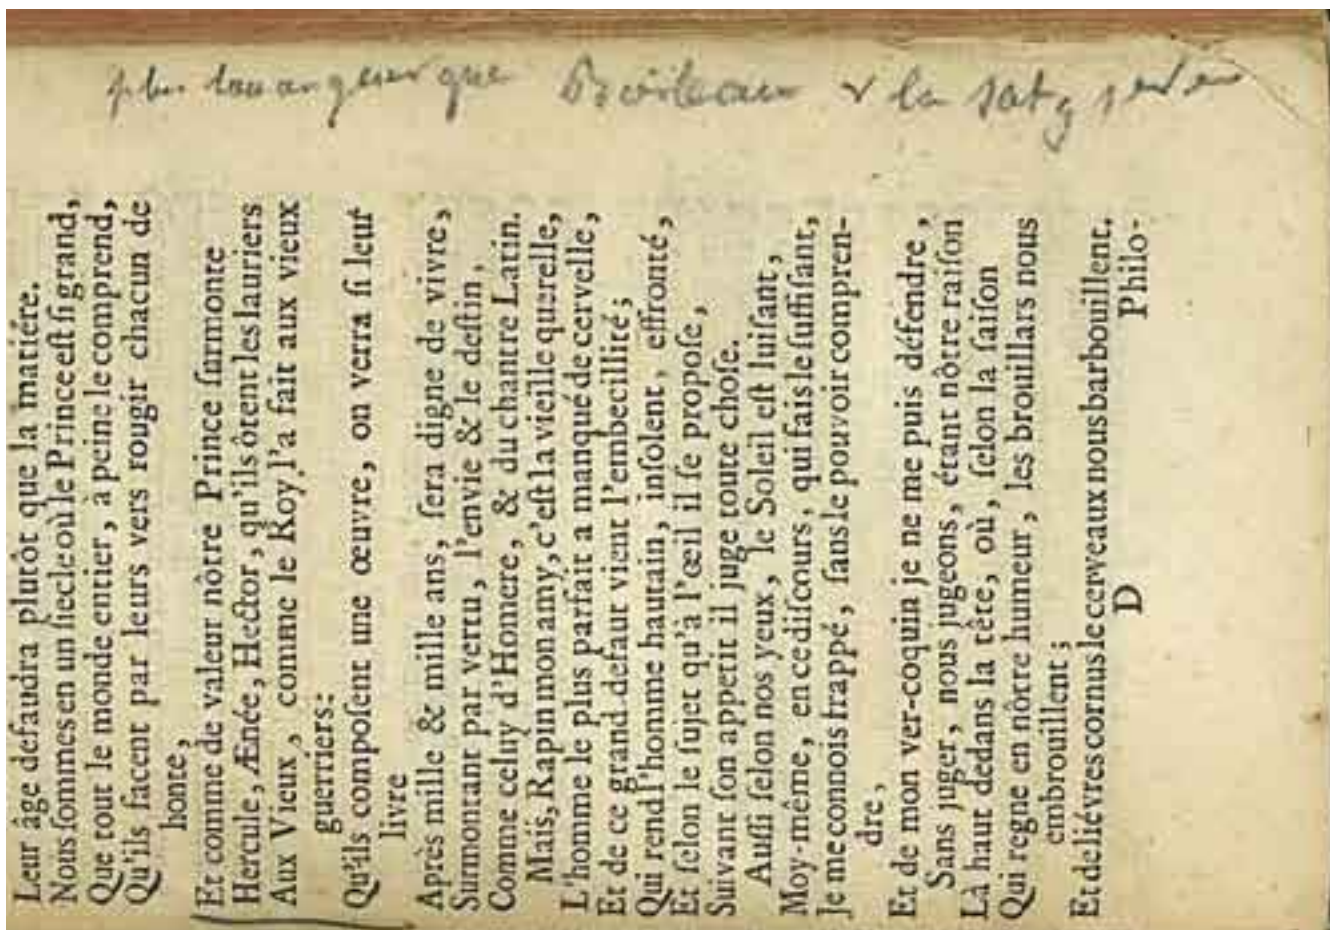 plus louangeur que Boileau & la
Leur âge defaudra plutôt que la matiére.
Nous sommes en un siecle où le Prince est si grand,
Que tout le monde entier, à peine le comprend,
Qu'ils facent par leurs vers rougir chacun de
honte,
Et comme de valeur nôtre Prince surmonte
Hercule, Ænée, Hector, qu'ils ôtent les lauriers
Aux Vieux, comme le Roy l'a fait aux vieux
guerriers:
Qu'ils composent une œuvre, on verra si leur
livre
Après mille & mille ans, sera digne de vivre,
Surmontant par vertu, l'envie & le destin,
Comme celuy d'Homere, & du chantre Latin.
Mais, Rapin mon amy, c'est la vieille querelle,
L'homme le plus parfait a manqué de cervelle,
Et de ce grand defaut vient l'embecillité;
Qui rend l'homme hautain, insolent, effronté,
Et selon le sujet qu'à l'œil il se propose,
Suivant son appetit il juge toute chose.
Aussi selon nos yeux, le Soleil est luisant,
Moy-même, en ce discours, qui fais le suffisant,
Je me connois frappé, sans le pouvoir compren-
dre,
Et de mon ver-coquin je ne me puis défendre,
Sans juger, nous jugeons, étant nôtre raison
Là haut dedans la tête, où, selon la saison
Qui regne en nôtre humeur, les brouillars nous
embrouillent;
Et de liévres cornus le cerveaux nous barbouillent.
D Philo-